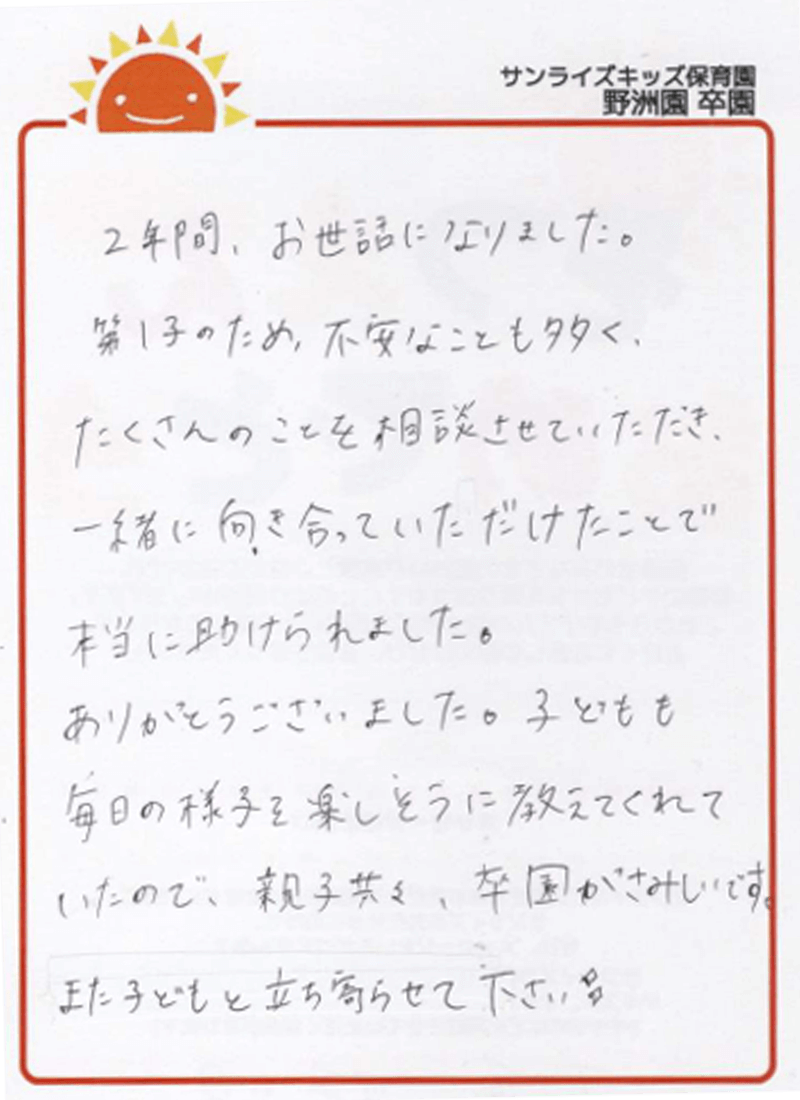 サンライズキッズ保育園
野洲園 卒園
2年間、お世話になりました。
第1子のため、不安なことも多く、
たくさんのことを相談させていただき、
一緒に向き合っていただけたことで
本当に助けられました。
ありがとうございました。子どもも
毎日の様子を楽しそうに教えてくれて
いたので、親子共々、卒園がさみしいです。
また子どもと立ち寄らせて下さい